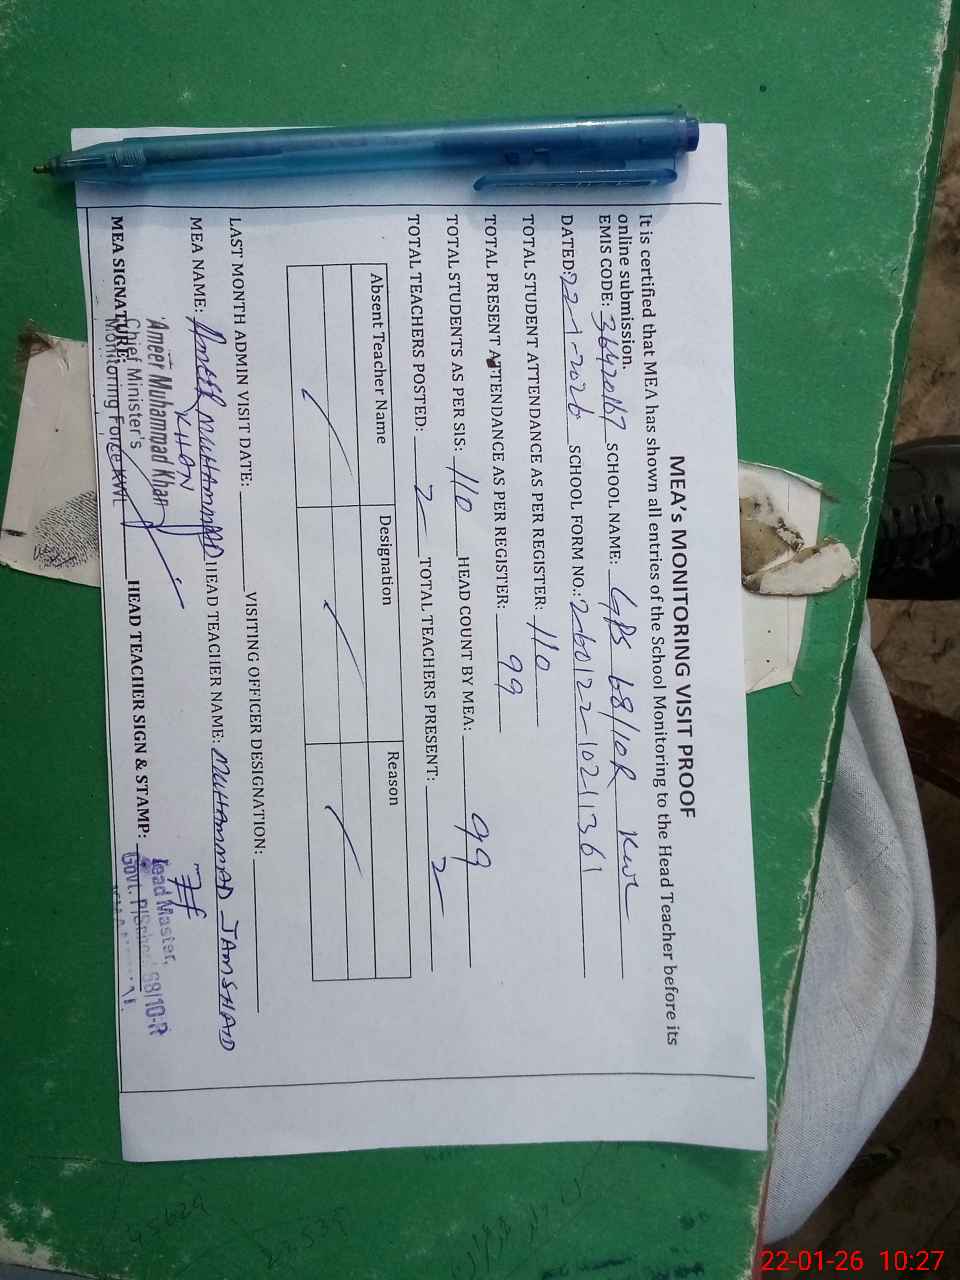 MEA's MONITORING VISIT PROOF
It is certified that MEA has shown all entries of the School Monitoring to the Head Teacher before its
online submission.
EMIS CODE: 36420167 SCHOOL NAME: GPS 68/10R KWL
DATED: 22-1-2026 SCHOOL FORM NO.: 260122-102-11361
TOTAL STUDENT ATTENDANCE AS PER REGISTER: 110
TOTAL PRESENT ATTENDANCE AS PER REGISTER: 99
TOTAL STUDENTS AS PER SIS: 110 HEAD COUNT BY MEA: 99
TOTAL TEACHERS POSTED: 2 TOTAL TEACHERS PRESENT: 2
Absent Teacher Name Designation Reason
LAST MONTH ADMIN VISIT DATE: VISITING OFFICER DESIGNATION:
MEA NAME: AMEER MUHAMMAD KHAN HEAD TEACHER NAME: MUHAMMAD JAMSHAID
Ameer Muhammad Khan
Chief Minister's
Monitoring Force KWL
MEA SIGNATURE: HEAD TEACHER SIGN & STAMP:
Head Master,
Govt. P/School 68/10-R
22-01-26 10:27